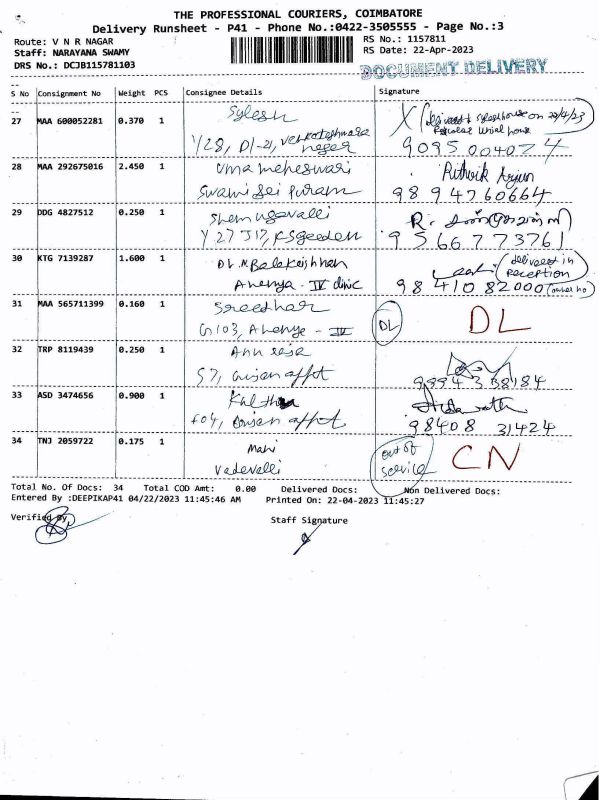 THE PROFESSIONAL COURIERS, COIMBATORE
Delivery Runsheet - P41 - Phone No.:0422-3505555 - Page No.:3
Route: V N R NAGAR
RS No.: 1157811
Staff: NARAYANA SWAMY
RS Date: 22-Apr-2023
DRS No.: DCJB115781103
DOCUMENT DELIVERY
S No Consignment No Weight PCS Consignee Details Signature
27 MAA 600052281 0.370 1 Sylesh
1/28, D1-21, Venkateshwara nagar
9095004024
28 MAA 292675016 2.450 1 Uma maheswari Rithvik Arjun
Swami Sei Puram 9894760664
29 DDG 4827512 0.250 1 Shemugavalli R.
Y 27 J17, KSgeeden 9566773761
30 KTG 7139287 1.600 1 Dr. N Balakrishnan delivered in Reception
Ahenya - IV clinic 9841082000
31 MAA 565711399 0.160 1 Sreedhar DL DL
G103, Ahenya - IV
32 TRP 8119439 0.250 1 Ann
S7, appt 9994338184
33 ASD 3474656 0.900 1
F04, appt 98408 31424
34 TNJ 2059722 0.175 1 Mahi out of service CN
Vadavalli
Total No. Of Docs: 34 Total COD Amt: 0.00 Delivered Docs: Non Delivered Docs:
Entered By :DEEPIKAP41 04/22/2023 11:45:46 AM Printed On: 22-04-2023 11:45:27
Verified By
Staff Signature